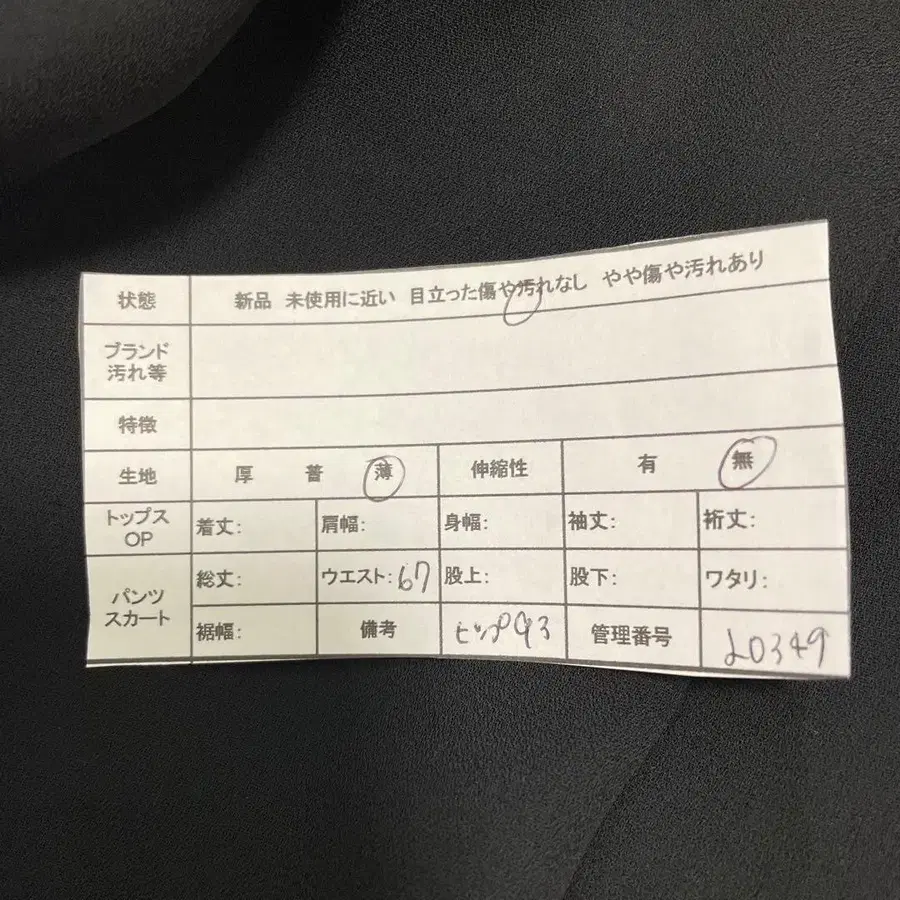 状態 新品 未使用に近い 目立った傷や汚れなし やや傷や汚れあり
ブランド
汚れ等
特徴
生地 厚 普 薄 伸縮性 有 無
トップス
OP
着丈: 肩幅: 身幅: 袖丈: 裄丈:
パンツ
スカート
総丈: ウエスト:67 股上: 股下: ワタリ:
裾幅: 備考 ヒップ93 管理番号 L0349